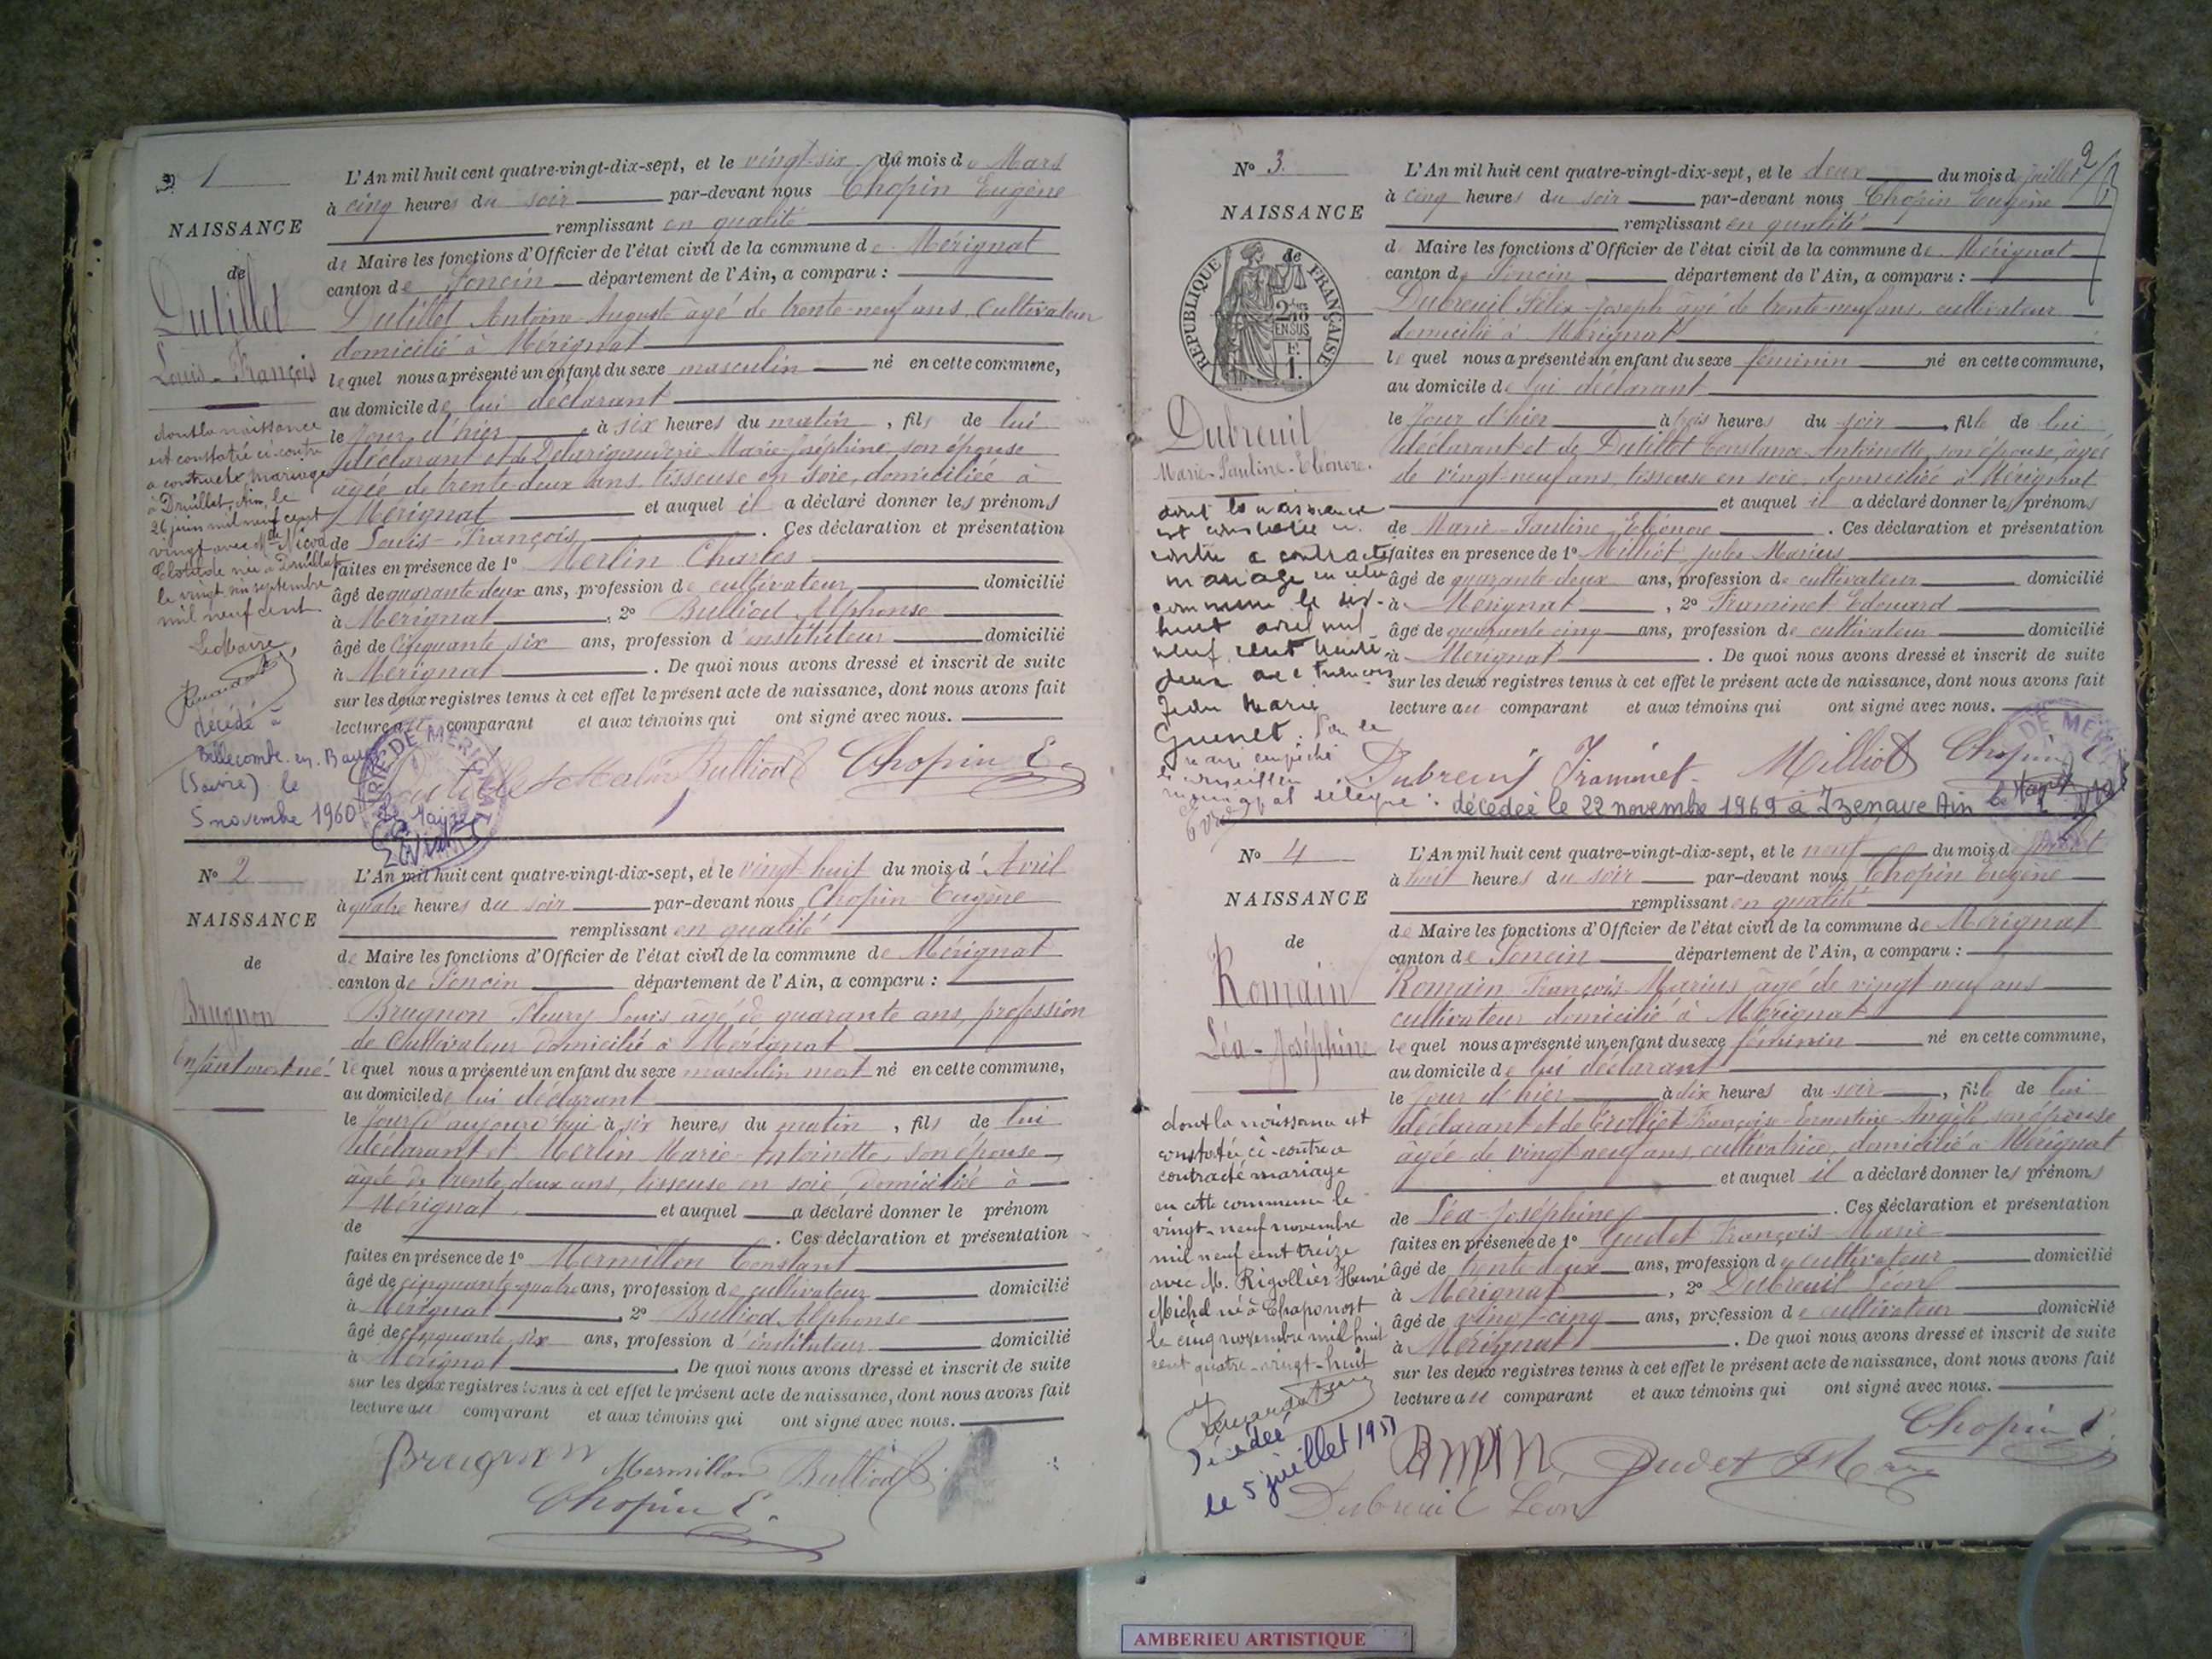 1
NAISSANCE
de
Dutillet
Louis-François
L'An mil huit cent quatre-vingt-dix-sept, et le vingt-six du mois de Mars
à cinq heures du soir par-devant nous Chopin Eugène
remplissant en qualité
de Maire les fonctions d'Officier de l'état civil de la commune de Mérignat
canton de Poncin département de l'Ain, a comparu :
Dutillet Antoine Auguste âgé de trente-neuf ans, Cultivateur
domicilié à Mérignat
lequel nous a présenté un enfant du sexe masculin né en cette commune,
au domicile de lui déclarant
le jour d'hier à six heures du matin, fils de lui
déclarant et de Marie-Joséphine, son épouse
âgée de trente-deux ans, tisseuse en soie, domiciliée à
Mérignat et auquel il a déclaré donner les prénoms
de Louis-François. Ces déclaration et présentation
faites en présence de 1° Merlin Charles
âgé de quarante deux ans, profession de cultivateur domicilié
à Mérignat, 2° Bulliod Alphonse
âgé de cinquante six ans, profession d'instituteur domicilié
à Mérignat. De quoi nous avons dressé et inscrit de suite
sur les deux registres tenus à cet effet le présent acte de naissance, dont nous avons fait
lecture au comparant et aux témoins qui ont signé avec nous.
dont la naissance
est constatée ci-contre
a contracté mariage
à Druillat, Ain, le
26 juin mil neuf cent
vingt avec Mlle Nicod
Clotilde née à Druillat
le vingt six septembre
mil neuf cent
Le Maire,
décédé à
Bellecombe-en-Bauges
(Savoie) le
5 novembre 1960
Le Maire
Bulliod Chopin E.
N° 2
NAISSANCE
de
Brugnon
Enfant mort né
L'An mil huit cent quatre-vingt-dix-sept, et le vingt-huit du mois d'Avril
à quatre heures du soir par-devant nous Chopin Eugène
remplissant en qualité
de Maire les fonctions d'Officier de l'état civil de la commune de Mérignat
canton de Poncin département de l'Ain, a comparu :
Brugnon Fleury Louis âgé de quarante ans, profession
de Cultivateur domicilié à Mérignat
lequel nous a présenté un enfant du sexe masculin mort né en cette commune,
au domicile de lui déclarant
le jour d'aujourd'hui à six heures du matin, fils de lui
déclarant et Merlin Marie-Antoinette, son épouse
âgée de trente deux ans, tisseuse en soie, domiciliée à
Mérignat et auquel a déclaré donner le prénom
de . Ces déclaration et présentation
faites en présence de 1° Mermillon Constant
âgé de cinquante-quatre ans, profession de cultivateur domicilié
à Mérignat, 2° Bulliod Alphonse
âgé de cinquante six ans, profession d'instituteur domicilié
à Mérignat. De quoi nous avons dressé et inscrit de suite
sur les deux registres tenus à cet effet le présent acte de naissance, dont nous avons fait
lecture au comparant et aux témoins qui ont signé avec nous.
Brugnon Mermillon Bulliod
Chopin E.
2
N° 3
NAISSANCE
de
REPUBLIQUE FRANÇAISE
EN SUS
Dubreuil
Marie-Pauline-Eléonore.
L'An mil huit cent quatre-vingt-dix-sept, et le deux du mois de juillet
à cinq heures du soir par-devant nous Chopin Eugène
remplissant en qualité
de Maire les fonctions d'Officier de l'état civil de la commune de Mérignat
canton de Poncin département de l'Ain, a comparu :
Dubreuil Félix-Joseph âgé de trente-neuf ans, cultivateur
domicilié à Mérignat
lequel nous a présenté un enfant du sexe féminin né en cette commune,
au domicile de lui déclarant
le jour d'hier à trois heures du soir, fille de lui
déclarant et de Dutillet Constance-Antoinette, son épouse, âgée
de vingt-neuf ans, tisseuse en soie, domiciliée à Mérignat
et auquel il a déclaré donner les prénoms
de Marie-Pauline-Eléonore. Ces déclaration et présentation
faites en présence de 1° Milliet Jules Marius
âgé de quarante deux ans, profession de cultivateur domicilié
à Mérignat, 2° Framinet Edouard
âgé de quarante cinq ans, profession de cultivateur domicilié
à Mérignat. De quoi nous avons dressé et inscrit de suite
sur les deux registres tenus à cet effet le présent acte de naissance, dont nous avons fait
lecture au comparant et aux témoins qui ont signé avec nous.
dont la naissance
est constatée ci-
contre a contracté
mariage en cette
commune le dix-
huit avril mil
neuf cent trente
deux avec François
Jean Marie
Guenet. Pour le
maire empêché
le conseiller
municipal délégué :
Dubreuil Framinet Milliet Chopin E
décédée le 22 novembre 1969 à Izenave Ain
N° 4
NAISSANCE
de
Romain
Léa-Joséphine
L'An mil huit cent quatre-vingt-dix-sept, et le neuf du mois de juillet
à huit heures du soir par-devant nous Chopin Eugène
remplissant en qualité
de Maire les fonctions d'Officier de l'état civil de la commune de Mérignat
canton de Poncin département de l'Ain, a comparu :
Romain François-Marius âgé de vingt neuf ans
cultivateur domicilié à Mérignat
lequel nous a présenté un enfant du sexe féminin né en cette commune,
au domicile de lui déclarant
le jour d'hier à dix heures du soir, fille de lui
déclarant et de Crolliet Françoise-Ernestine-Angèle, son épouse
âgée de vingt neuf ans, cultivatrice, domiciliée à Mérignat
et auquel il a déclaré donner les prénoms
de Léa-Joséphine. Ces déclaration et présentation
faites en présence de 1° Gudet François-Marie
âgé de trente-deux ans, profession de cultivateur domicilié
à Mérignat, 2° Dubreuil Léon
âgé de vingt-cinq ans, profession de cultivateur domicilié
à Mérignat. De quoi nous avons dressé et inscrit de suite
sur les deux registres tenus à cet effet le présent acte de naissance, dont nous avons fait
lecture au comparant et aux témoins qui ont signé avec nous.
dont la naissance est
constatée ci-contre a
contracté mariage
en cette commune le
vingt-neuf novembre
mil neuf cent treize
avec M. Rigollier Henri
Michel né à Chaponost
le cinq novembre mil huit
cent quatre-vingt-huit
Décédée
le 5 juillet 195
Chopin E.
Gudet F Marie
Dubreuil Léon
AMBERIEU ARTISTIQUE